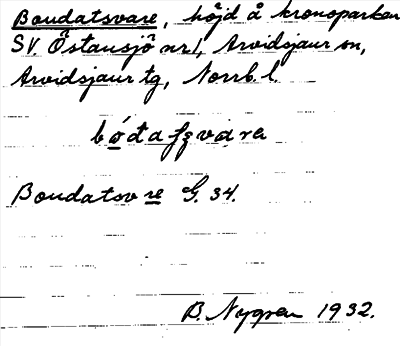 Boudatsvare, höjd å kronoparken
SV. Östansjö nr 1, Arvidsjaur sn,
Arvidsjaur tg, Norrb. l.
bo̱´đafʒvάra
Boudatsvare G. 34.
B. Nygren 1932.